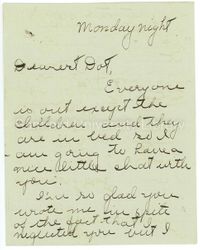 Monday night
Dearest Dot,
Everyone
is out except the
children and they
are in bed so I
am going to have a
nice little chat with
you.
I'm so glad you
wrote me in spite
of the fact that I
neglected you but I